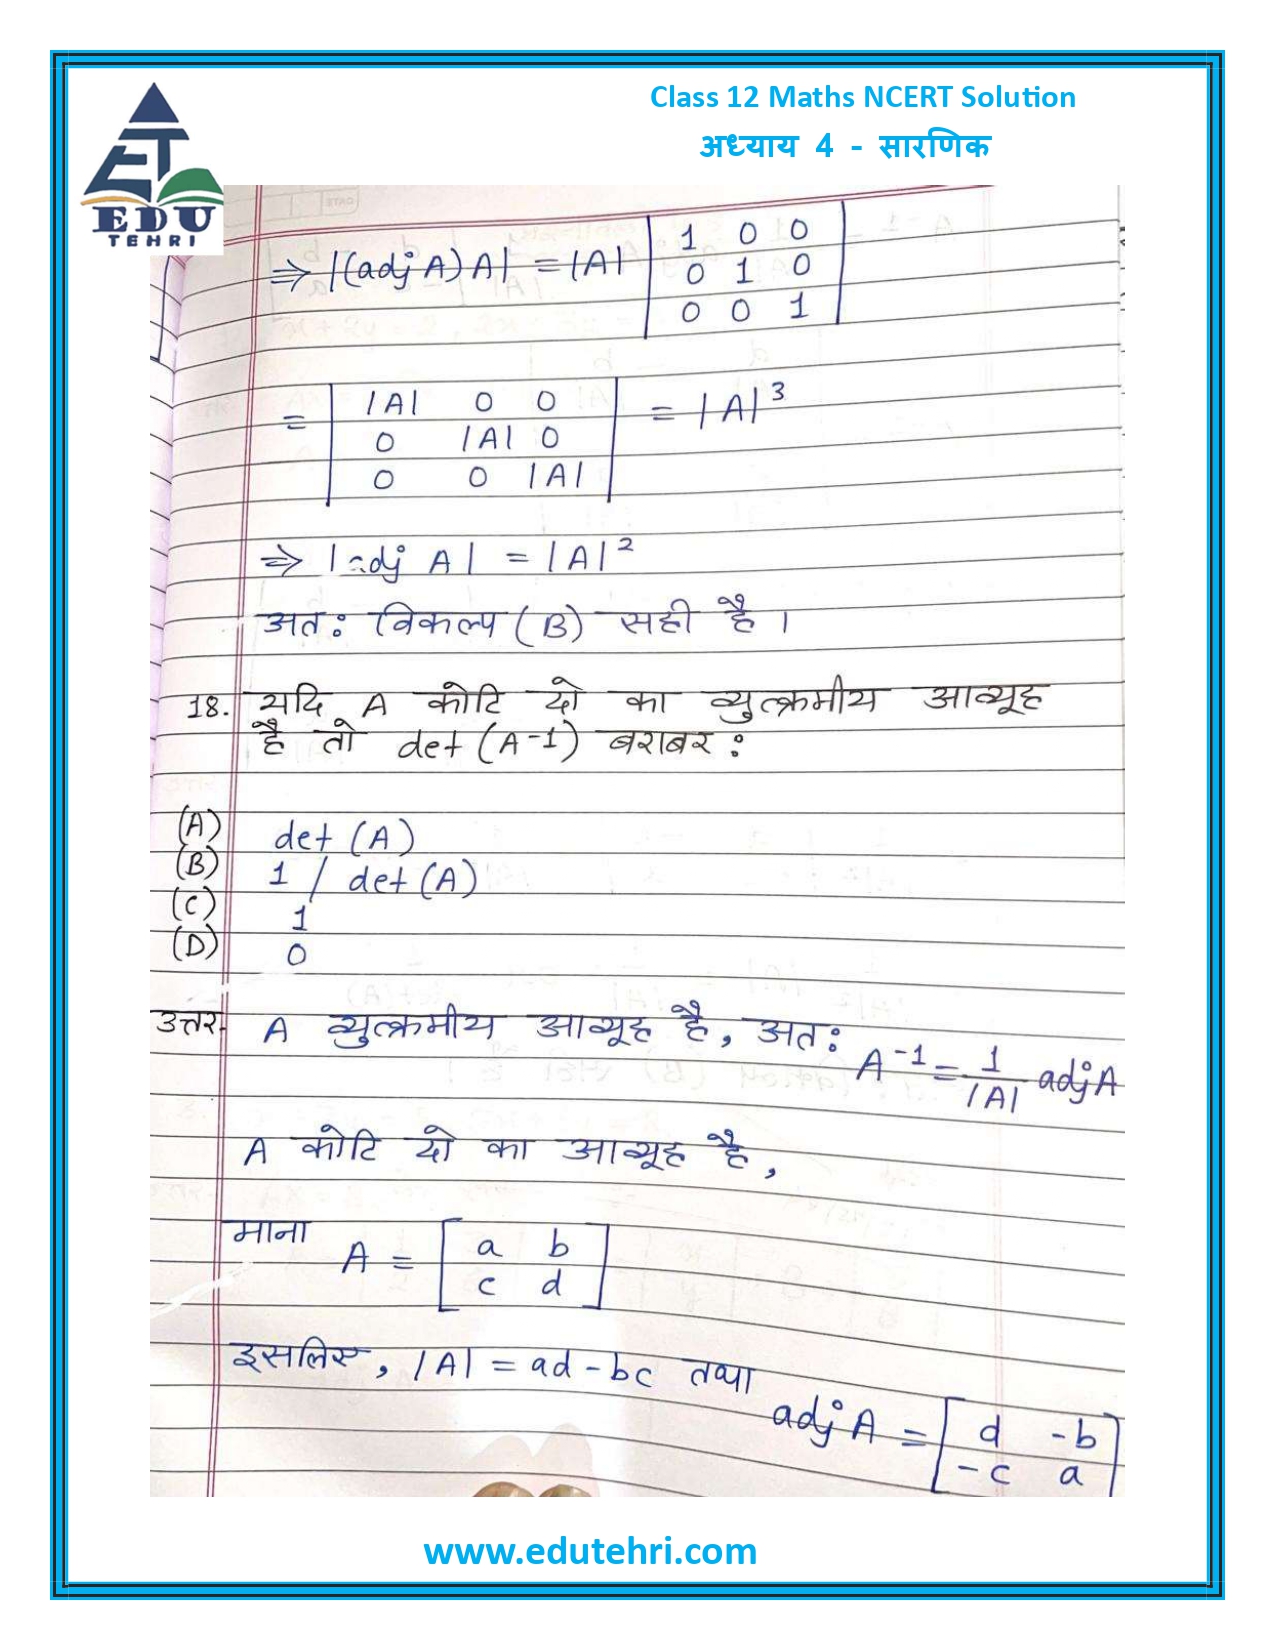 Class 12 Maths NCERT Solution
अध्याय 4 - सारणिक
EDU
TEHRI
⇒ |(adj A) A| = |A| | 1 0 0
0 1 0
0 0 1 |
= | |A| 0 0
0 |A| 0
0 0 |A| | = |A|³
⇒ |adj A| = |A|²
अतः विकल्प (B) सही है ।
18. यदि A कोटि दो का व्युत्क्रमीय आव्यूह
है तो det (A⁻¹) बराबर :
(A) det (A)
(B) 1 / det (A)
(C) 1
(D) 0
उत्तर- A व्युत्क्रमीय आव्यूह है, अतः A⁻¹ = 1/|A| adj A
A कोटि दो का आव्यूह है,
माना A = [ a b
c d ]
इसलिए, |A| = ad - bc तथा
adj A = [ d -b
-c a ]
www.edutehri.com